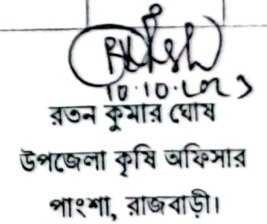 10.10.2023
রতন কুমার ঘোষ
উপজেলা কৃষি অফিসার
পাংশা, রাজবাড়ী।